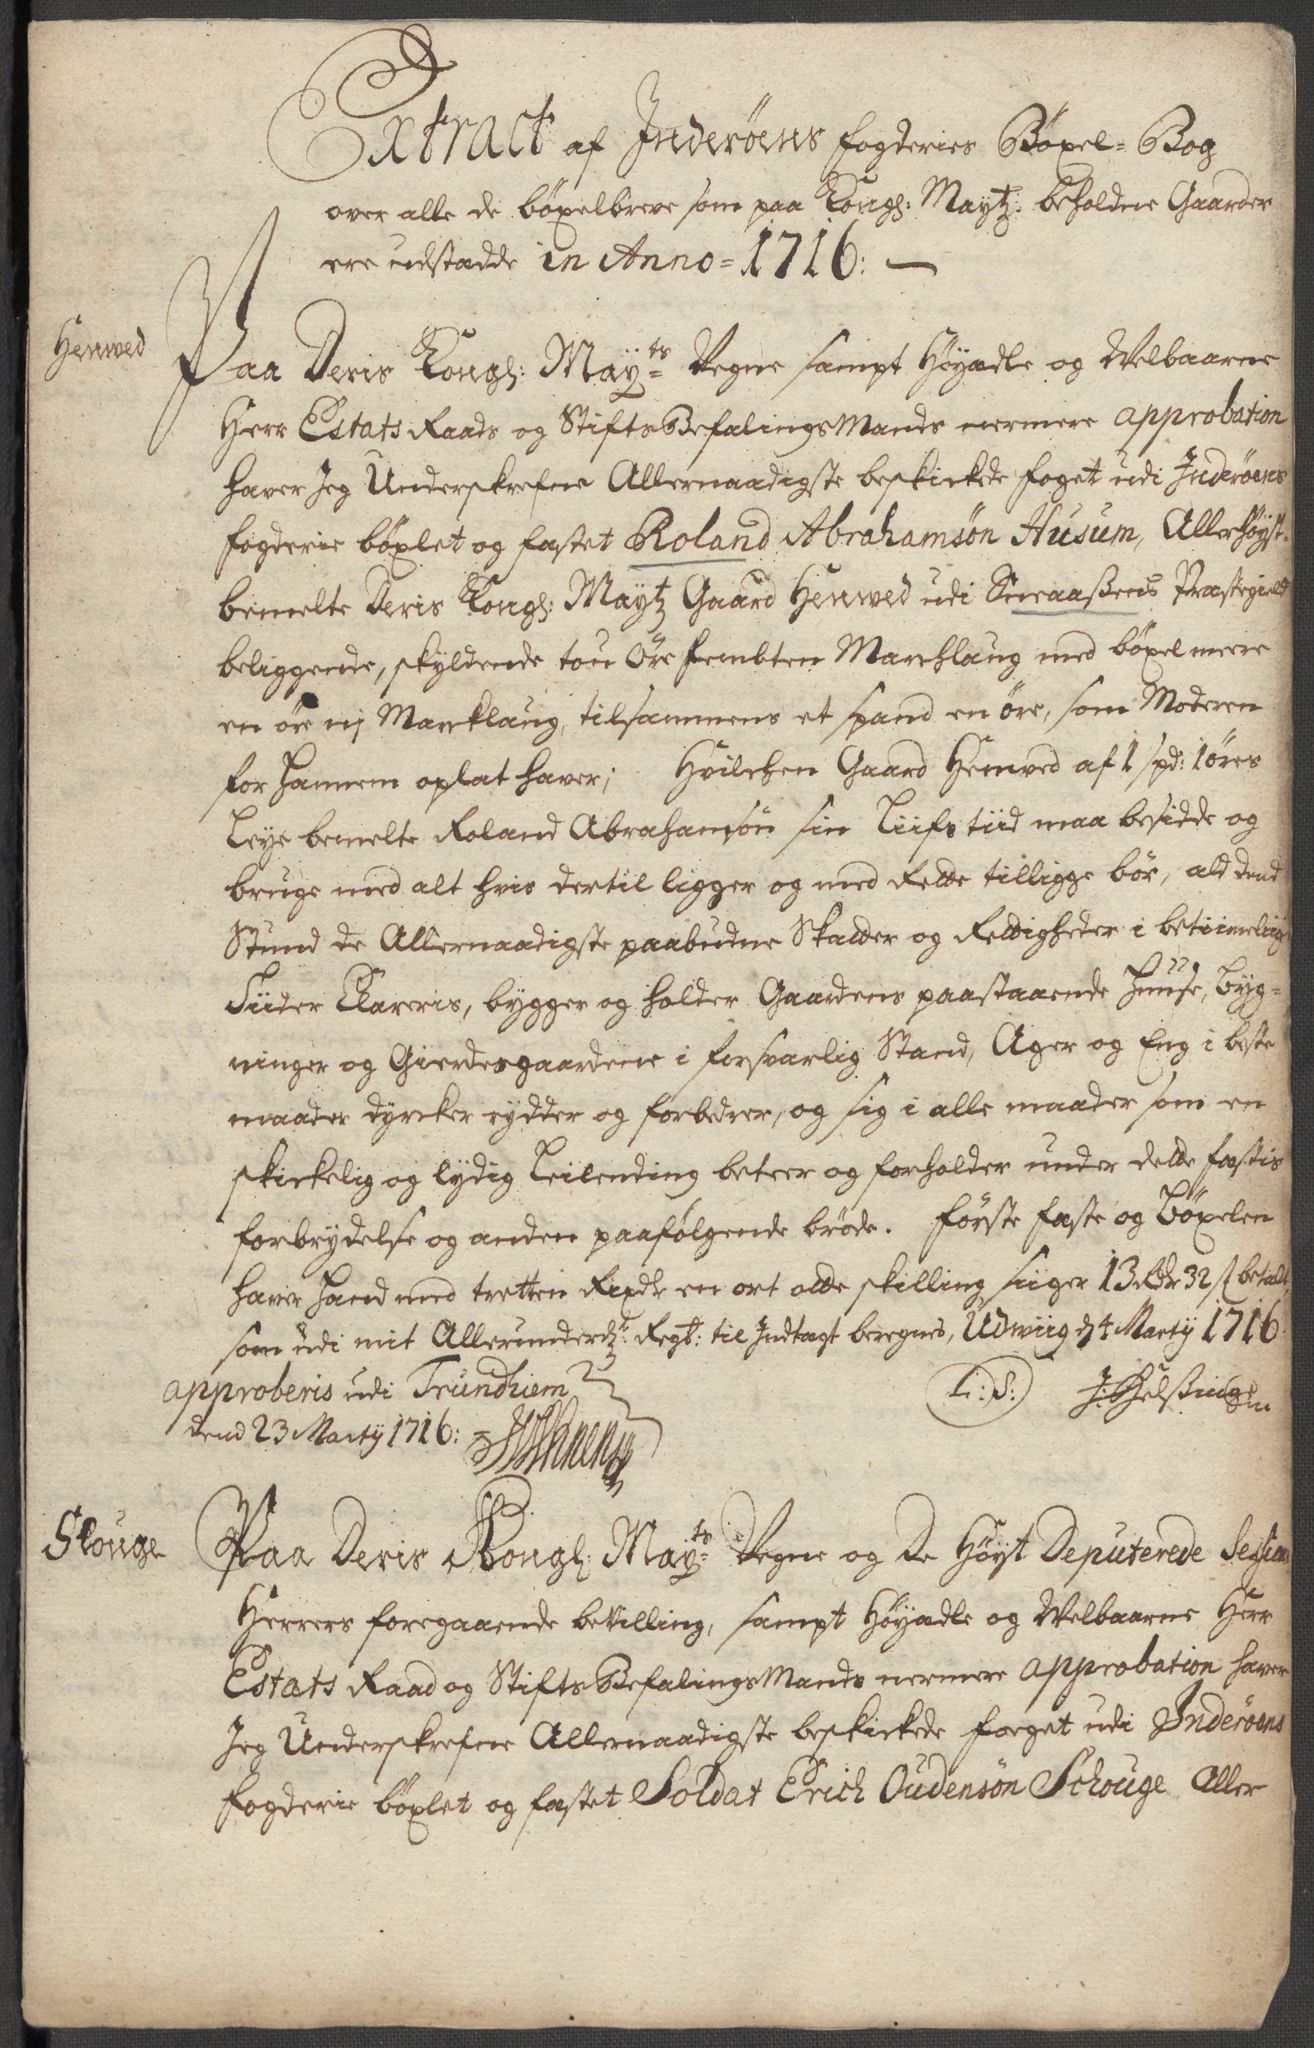 Extract af Inderöens fogderies Böxel-Bog
over alle de böxelbreve som paa Kongl: Maytz: beholdne Gaarder
ere udstædde in Anno = 1716: —
Henwed
Paa Deris Kongl: Mayts Vegne sampt Höyædle og Welbaarne
Herr Estats Raads og StiftsBefalingsMands nermere approbation
haver Jeg Underskrefne Allernaadigste beskickede foget udi Inderöens
fogderie böxlet og fæstet Roland Abrahamsön Husum, Allerhöyst-
bemelte Deris Kongl: Maytz Gaard Henwed udi Sneaaßens Præstegield
beliggende, skyldende tou Öre fembten Marchlaug med böxel mere
en öre nj Marcklaug, tilsammens et spand en öre, som Moderen
for hannem oplat haver; Hvilchen Gaard Hemved af 1 spd: 1 öres
Leye bemelte Roland Abrahamsön sin Liifs tiid maa besidde og
bruge med alt hvis dertil ligger og med Rette tilligge bör, ald dend
Stund de Allernaadigste paabudne Skatter og Rettigheder i betiimelig
Tiider Clareris, bygger og holder Gaardens paastaaende Huuse, Byg-
ninger og Gierdesgaardene i forsvarlig Stand, Ager og Eng i beste
maader dyrcker rydder og forbedrer, og sig i alle maader som en
skickelig og lydig Leilending beteer og forholder under dette festis
forbrydelse og anden paafölgende bröde. Förste fæste og Böxelen
haver hand med tretten Rixdr en ort otte skilling siiger 13 Rdr 32 s betalt
som udi mit Allerunderd: Regt: til Indtægt beregnes, Udwiig d 4 Marty 1716
approberis udi Trundhiem
L: S:
dend 23 Marty 1716:
Skouge
Paa Deris Kongl: Mayts Vegne og De Höyt Deputerede Sessions
Herrers foregaaende beVilling, sampt Höyædle og Welbaarne Herr
Estats Raad og StiftsBefalingsMands nermere approbation haver
Jeg Underskrefne Allernaadigste beskickede foeget udi Inderöens
fogderie böxlet og fæstet Soldat Erich Oudensön Schouge Aller